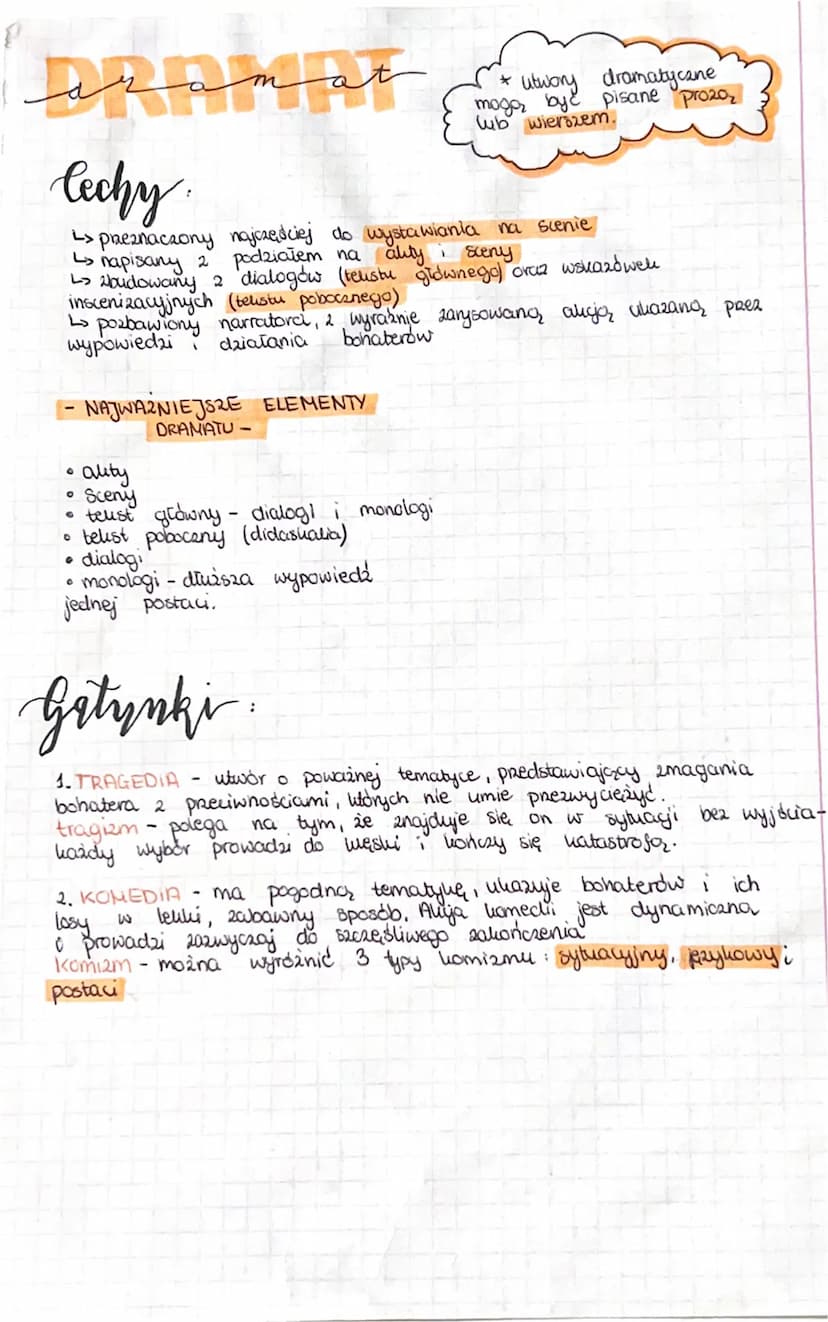 DRAMAT
dramat
* utwory dramatyczne
mogą być pisane prozą
lub wierszem.
Cechy:
↳ przeznaczony najczęściej do wystawiania na scenie
↳ napisany z podziałem na akty i sceny
↳ zbudowany z dialogów (tekstu głównego) oraz wskazówek
inscenizacyjnych (tekstu pobocznego)
↳ pozbawiony narratora, z wyraźnie zarysowaną akcją ukazaną przez
wypowiedzi i działania bohaterów
- NAJWAŻNIEJSZE ELEMENTY
DRAMATU -
• akty
• sceny
• tekst główny - dialogi i monologi
• tekst poboczny (didaskalia)
• dialogi
• monologi - dłuższa wypowiedź
jednej postaci.
Gatunki:
1. TRAGEDIA - utwór o poważnej tematyce, przedstawiający zmagania
bohatera z przeciwnościami, których nie umie przezwyciężyć.
tragizm - polega na tym, że znajduje się on w sytuacji bez wyjścia -
każdy wybór prowadzi do klęski i kończy się katastrofą.
2. KOMEDIA - ma pogodną tematykę, ukazuje bohaterów i ich
losy w lekki, zabawny sposób. Akcja komedii jest dynamiczna
i prowadzi zazwyczaj do szczęśliwego zakończenia
Komizm - można wyróżnić 3 typy komizmu: sytuacyjny, językowy i
postaci